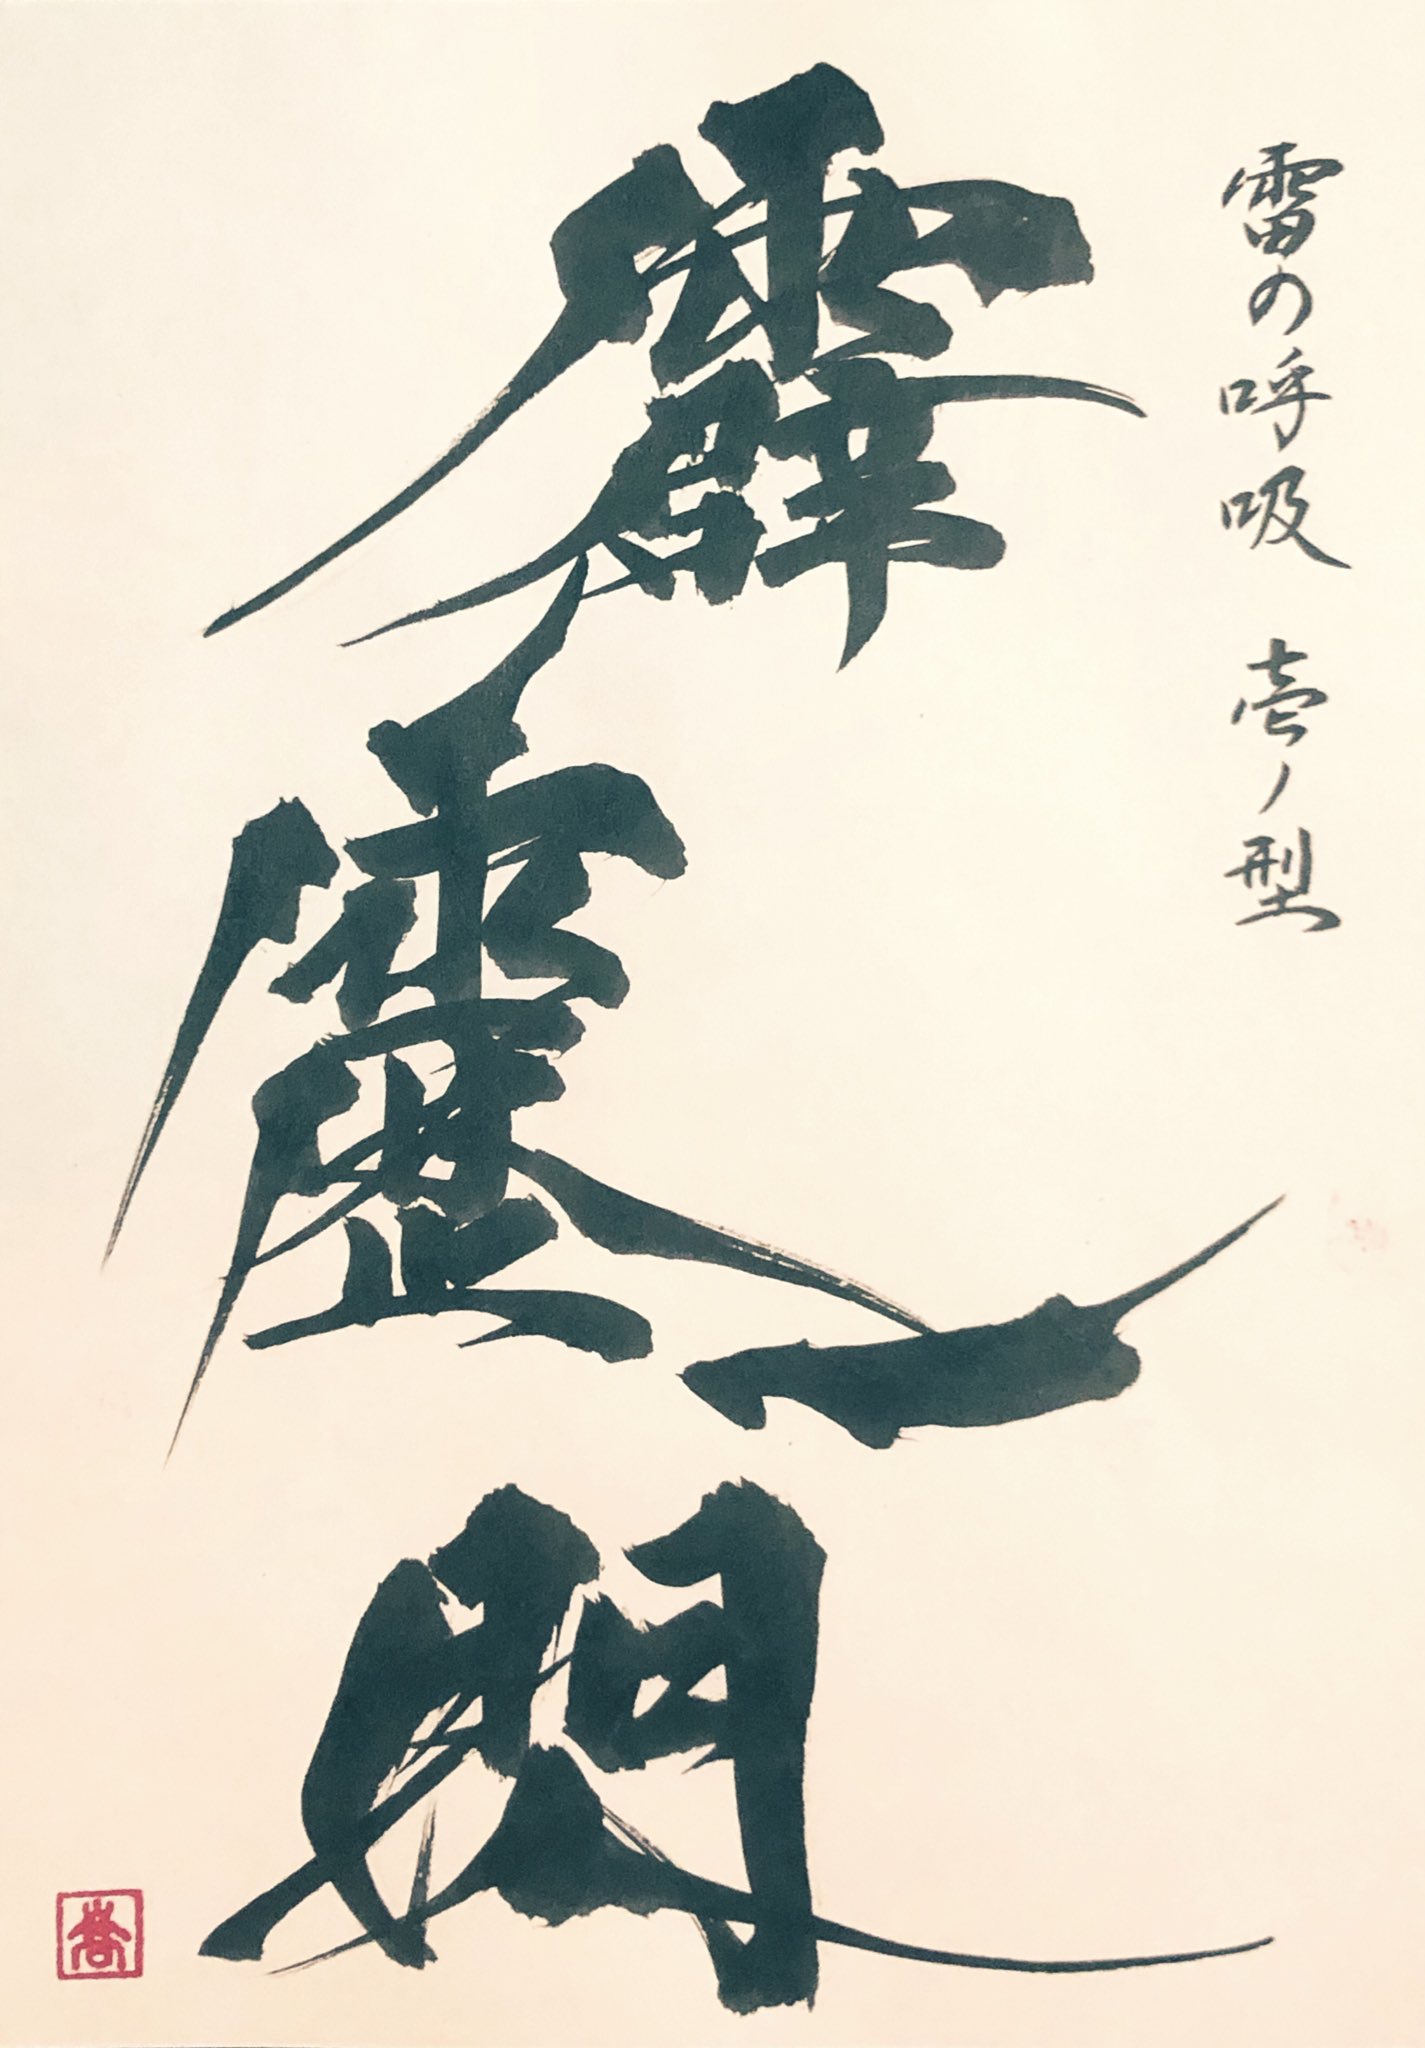 雷の呼吸 壱ノ型
霹靂一閃